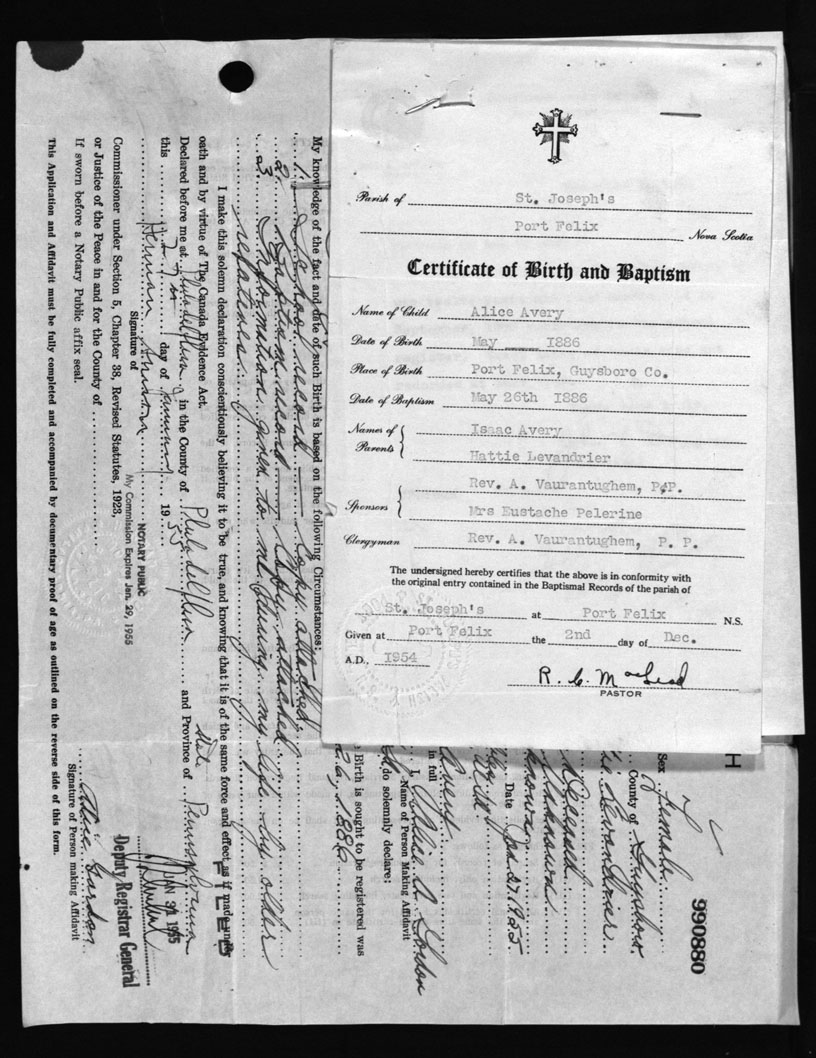 Parish of St. Joseph's
Port Felix Nova Scotia
Certificate of Birth and Baptism
Name of Child Alice Avery
Date of Birth May 1886
Place of Birth Port Felix, Guysboro Co.
Date of Baptism May 26th 1886
Names of Parents Isaac Avery
Hattie Levandrier
Sponsors Rev. A. Vaurantughem, P.P.
Mrs Eustache Pelerine
Clergyman Rev. A. Vaurantughem, P. P.
The undersigned hereby certifies that the above is in conformity with
the original entry contained in the Baptismal Records of the parish of
St. Joseph's at Port Felix N.S.
Given at Port Felix the 2nd day of Dec.
A.D., 1954
R. C. MacLeod
PASTOR
990880
H
Sex Female
County of Guysboro
Levandrier
Unknown
Date Jan 27 1955
in full Avery
I, Alice A. Gordon
Name of Person Making Affidavit
do solemnly declare:
Birth is sought to be registered was
1886
My knowledge of the fact and date of such Birth is based on the following Circumstances:
1. School record - Copy attached
2. Baptism record - Copy attached
3. Information given to me during my life by older
relatives
I make this solemn declaration conscientiously believing it to be true, and knowing that it is of the same force and effect as if made under
oath and by virtue of The Canada Evidence Act.
FILED
Declared before me at Philadelphia in the County of Philadelphia and Province of State Pennsylvania
this 27th day of January 1955
Herman
Signature of
NOTARY PUBLIC
My Commission Expires Jan. 29, 1955
JAN 31 1955
Deputy Registrar General
Alice Gordon
Signature of Person making Affidavit
Commissioner under Section 5, Chapter 38, Revised Statutes, 1923,
or Justice of the Peace in and for the County of
If sworn before a Notary Public affix seal.
This Application and Affidavit must be fully completed and accompanied by documentary proof of age as outlined on the reverse side of this form.